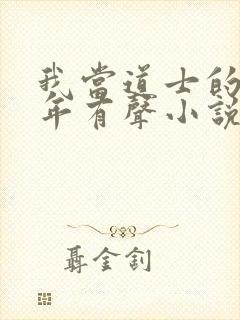 我當道士的
年有聲小說
聶金釗